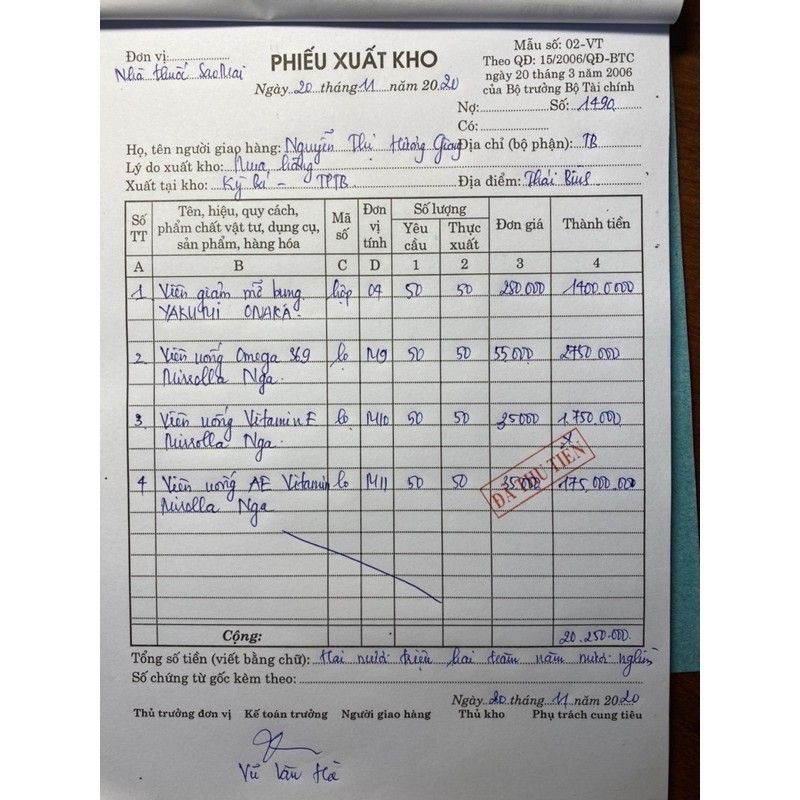 Đơn vị: Nhà thuốc Sao Mai
PHIẾU XUẤT KHO
Ngày 20 tháng 11 năm 2020
Mẫu số: 02-VT
Theo QĐ: 15/2006/QĐ-BTC
ngày 20 tháng 3 năm 2006
của Bộ trưởng Bộ Tài chính
Nợ: Số: 1490
Có:
Họ, tên người giao hàng: Nguyễn Thị Hương Giang Địa chỉ (bộ phận): TB
Lý do xuất kho: Mua hàng
Xuất tại kho: Kỳ Bá - TPTB Địa điểm: Thái Bình
Số TT Tên, hiệu, quy cách, phẩm chất vật tư, dụng cụ, sản phẩm, hàng hóa Mã số Đơn vị tính Số lượng Yêu cầu Thực xuất Đơn giá Thành tiền
A B C D 1 2 3 4
1 Viên giảm mỡ bụng hộp 04 50 50 280.000 1400.0000
YAKUMI ONAKA.
2 Viên uống Omega 369 lọ M9 50 50 55.000 2750000
Mirrolla Nga.
3 Viên uống Vitamin E lọ M10 50 50 35000 1.750.000
Mirrolla Nga.
4 Viên uống AE Vitamin lọ M11 50 50 35000 175,000.000
Mirolla Nga
ĐÃ THU TIỀN
Cộng: 20.250.000
Tổng số tiền (viết bằng chữ): Hai mươi triệu hai trăm năm mươi nghìn
Số chứng từ gốc kèm theo:
Ngày 20 tháng 11 năm 2020
Thủ trưởng đơn vị Kế toán trưởng Người giao hàng Thủ kho Phụ trách cung tiêu
Vũ Văn Hà